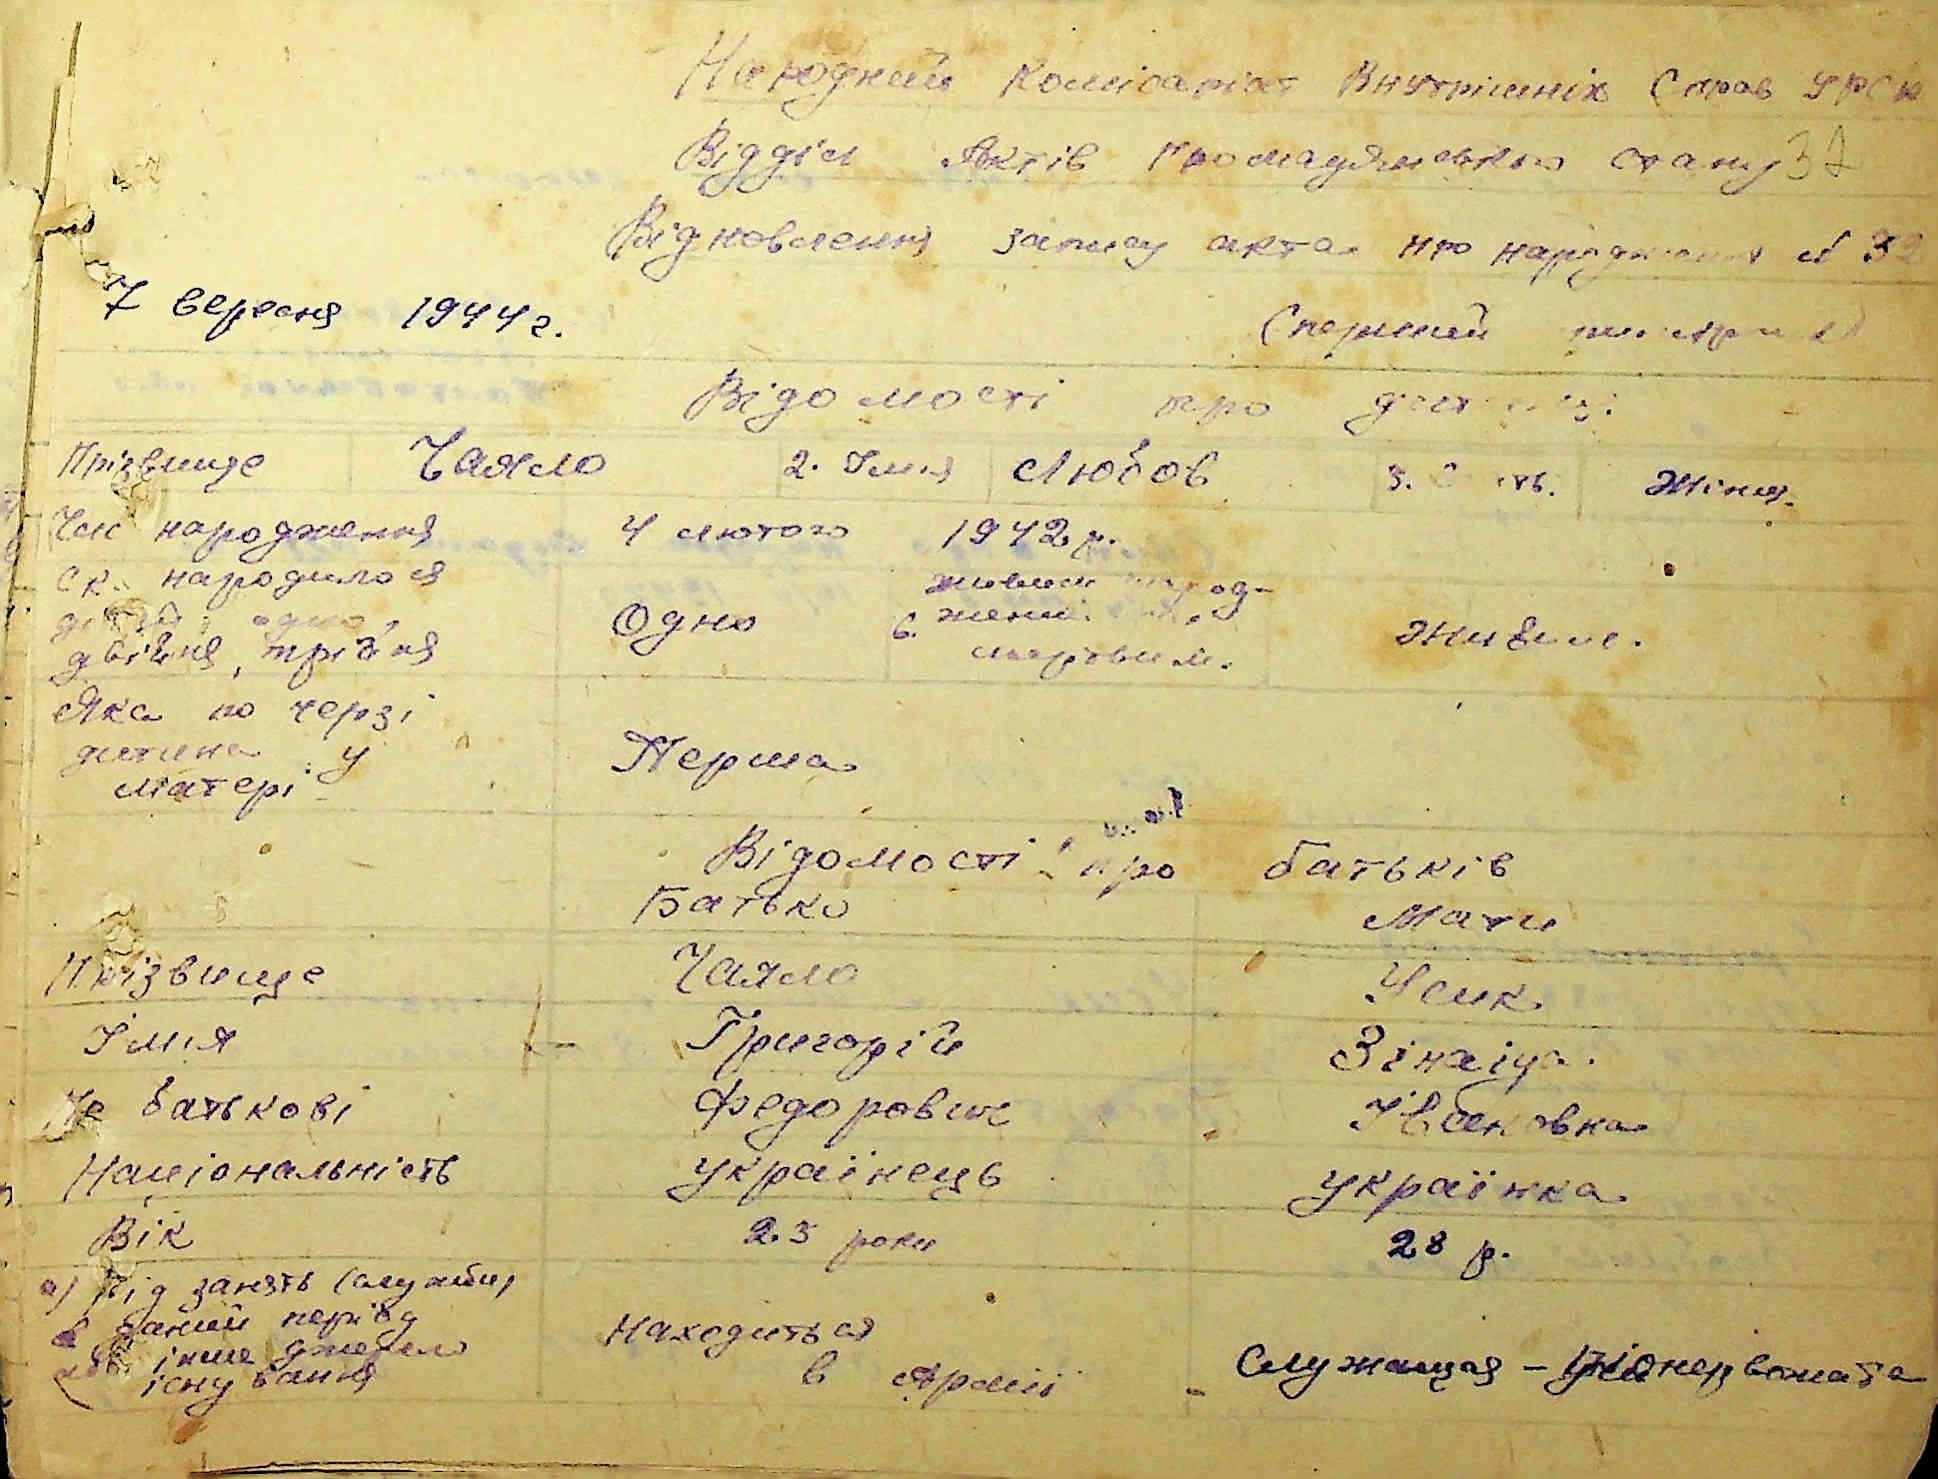 Народний Комісаріат Внутрішніх Справ УРСР
Відділ Актів Громадянського стану 37
Відновлення запису акта про народження № 32
7 вересня 1944 г.
(перший
Відомості про
Прізвище Чаяло 2. Імя Любов 3. Стать. Жіноч.
Час народження 4 лютого 1942 р.
Ск. народилося дітей, одно, двійня, трійня Одно
6. живим народженим мертвим. Живим.
Яка по черзі
дитина у
матері Перша
Відомості про батьків
Батько Мати
Прізвище Чаяло Усик
Імя Григорій Зінаіда.
По батькові Федорович Івановна
Національність українець українка
Вік 23 роки 28 р.
а) Рід занять (служби)
в даний період
або інше джерело
існування
Находиться
в Армії
Служащая – Піонервожата